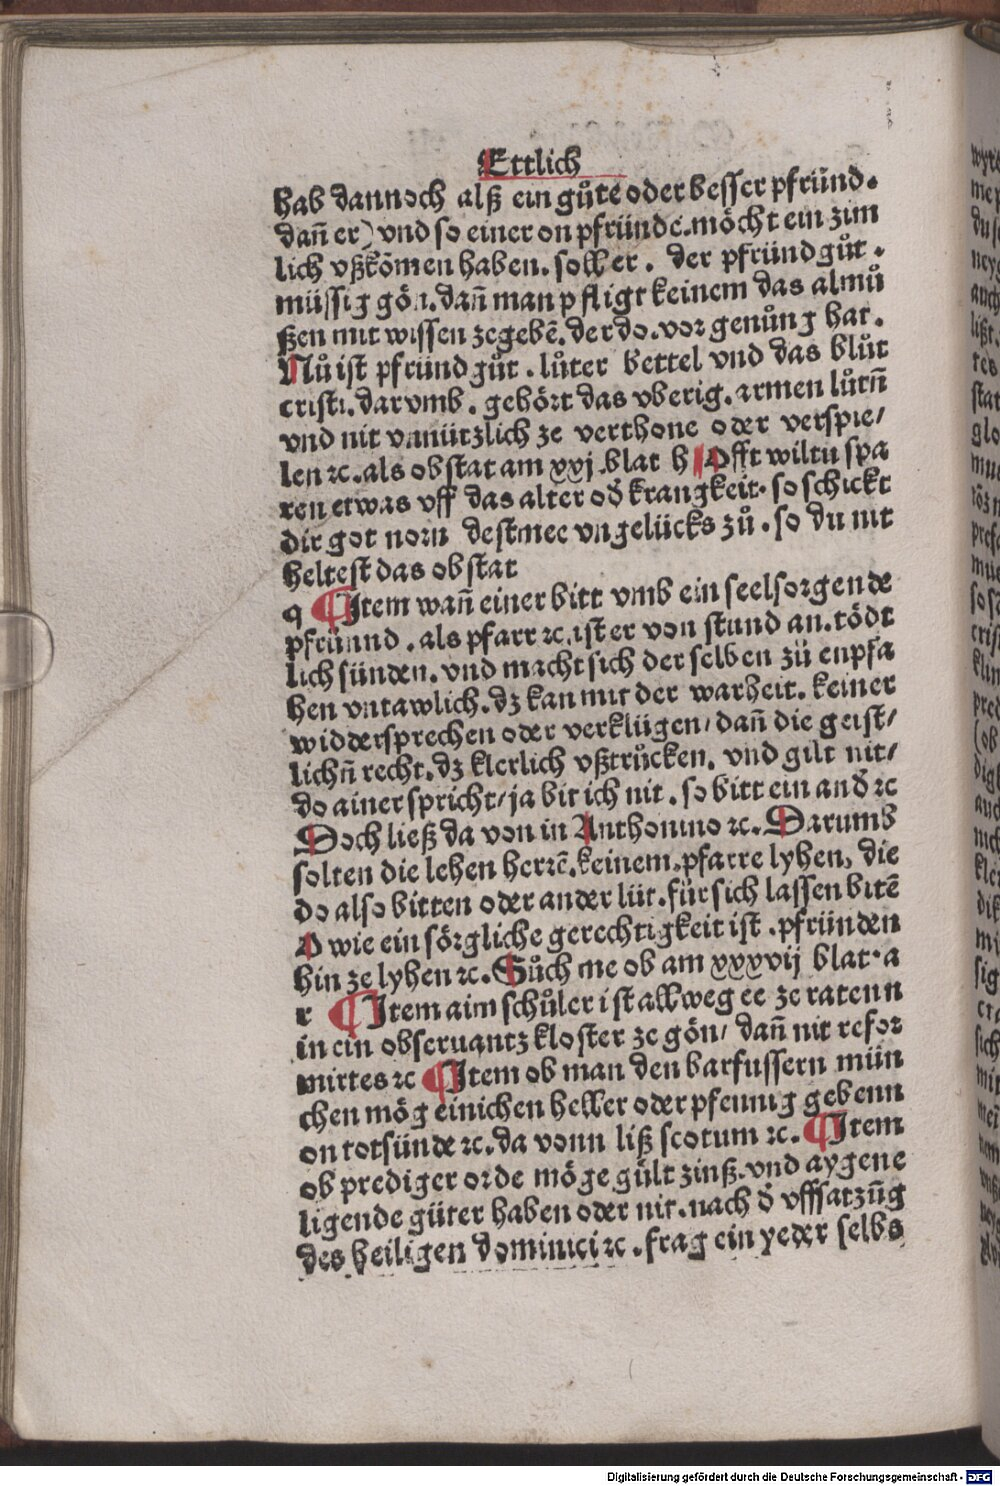 Ettlich
hab dannoch alß ein gůte oder besser pfründ.
dañ er) vnd so einer on pfründe. möcht ein zim
lich vßkōmen haben. soll er. der pfründ gůt.
müssig gön. dañ man pfligt keinem das almů
ßen mit wissen zegebē. der do. vor genůng hat.
Nů ist pfründ gůt. lůter bettel vnd das blůt
cristi. dar vmb. gehört das vberig. armen lůtñ
vnd nit vnnützlich ze verthone oder verspie/
len ꝛc. als ob stat am xxj. blat h Offt wiltu spa
ren etwas vff das alter od̄ krangkeit. so schickt
dir got norn destmee vngelücks zů. so du nit
heltest das ob stat
q ¶ Item wañ einer bitt vmb ein seelsorgende
pfründ. als pfarr ꝛc. ist er von stund an. tödt
lich sünden. vnd macht sich der selben zü enpfa
hen vntawlich. dz kan mit der warheit. keiner
widdersprechen oder verklügen/ dañ die geist/
lichñ recht. dz klerlich vßtrůcken. vnd gilt nit/
do ainer spricht/ ja bit ich nit. so bitt ein and̄ ꝛc
Doch ließ da von in Anthonino ꝛc. Darumb
solten die lehen herrē. keinem. pfarre lyhen, die
do also bitten oder ander lüt. für sich lassen bitē
O wie ein sörgliche gerechtigkeit ist. pfründen
hin ze lyhen ꝛc. Sůch me ob am xxxvij blat. a
r ¶ Item aim schůler ist allweg ee ze ratenn
in ein obseruantz kloster ze gön/ dañ nit refor
mirtes ꝛc ¶ Item ob man den barfussern mün
chen mög einichen heller oder pfennig gebenn
on totsünde ꝛc. da vonn liß scotum ꝛc. ¶ Item
ob prediger orde möge gült zinß. vnd aygene
ligende güter haben oder nit. nach d̄ vffsatzūg
des heiligen dominici ꝛc. frag ein yeder selbs
Digitalisierung gefördert durch die Deutsche Forschungsgemeinschaft - DFG